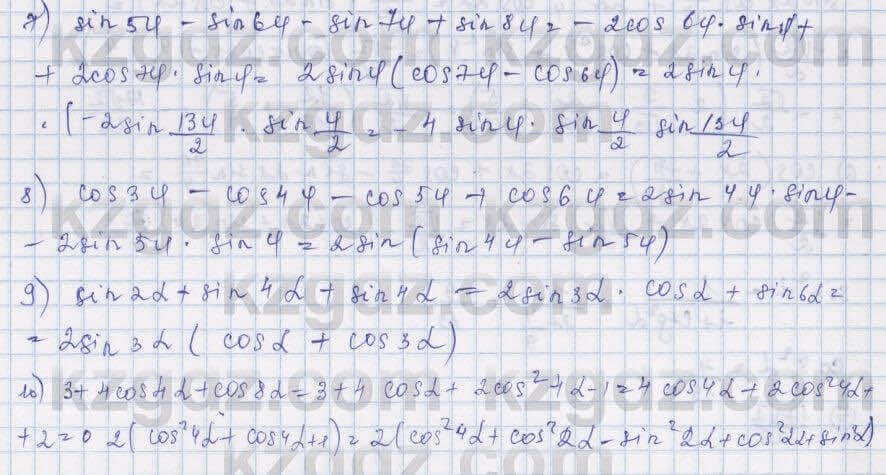 7) sin 5φ - sin 6φ - sin 7φ + sin 8φ = - 2cos 6φ · sin φ +
+ 2cos 7φ · sin φ = 2 sin φ (cos 7φ - cos 6φ) = 2 sin φ ·
· (-2 sin 13φ/2 · sin φ/2 = - 4 sin φ · sin φ/2 sin 13φ/2
8) cos 3φ - cos 4φ - cos 5φ + cos 6φ = 2 sin 4φ · sin φ -
- 2 sin 5φ · sin φ = 2 sin (sin 4φ - sin 5φ)
9) sin 2α + sin 4α + sin 4α = 2 sin 3α · cos α + sin 6α =
= 2 sin 3α (cos α + cos 3α)
10) 3 + 4 cos 4α + cos 8α = 3 + 4 cos α + 2cos² 4α - 1 = 4 cos 4α + 2 cos² 4α +
+ 2 = 0 2(cos² 4α + cos 4α + 1) = 2(cos² 4α + cos² 2α - sin² 2α + cos² 2α + sin² 2α)
kzgdz.com kzgdz.com
kzgdz.com kzgdz.com
kzgdz.com kzgdz.com
kzgdz.com kzgdz.com
kzgdz.com kzgdz.com